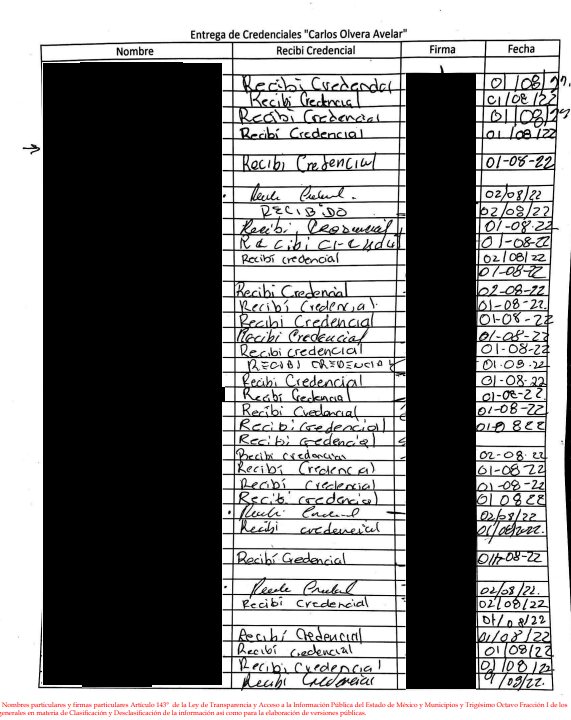 Entrega de Credenciales "Carlos Olvera Avelar"
Nombre Recibi Credencial Firma Fecha
Recibi Credencial 01/08/22
Recibi Credencial 01/08/22
Recibi Credencial 01/08/22
Recibi Credencial 01/08/22
Recibi Credencial 01-08-22
02/08/22
RECIBIDO 02/08/22
Recibi 01-08-22
01-08-22
Recibí credencial 02/08/22
01-08-22
Recibi Credencial 02-08-22
Recibí Credencial 01-08-22
Recibi Credencial 01-08-22
Recibi Credencial 01-08-22
Recibi credencial 01-08-22
RECIBI CREDENCIAL 01-08-22
Recibi Credencial 01-08-22
Recibi Credencial 01-08-22
Recibí Credencial 01-08-22
Recibi credencial 010822
Recibi credencial
Recibi credencial 02-08-22
Recibí Credencial 01-08-22
Recibí credencial 01-08-22
Recibi credencial 010822
02/08/22
Recibi credencial
Recibí Credencial 01-08-22
02/08/22.
Recibi Credencial 02/08/22
01/08/22
Recibí Credencial 01/08/22
Recibí credencial 01/08/22
Recibi credencial
Recibi Credencial
Nombres particulares y firmas particulares Artículo 143° de la Ley de Transparencia y Acceso a la Información Pública del Estado de México y Municipios y Trigésimo Octavo Fracción I de los
generales en materia de Clasificación y Desclasificación de la información así como para la elaboración de versiones públicas.